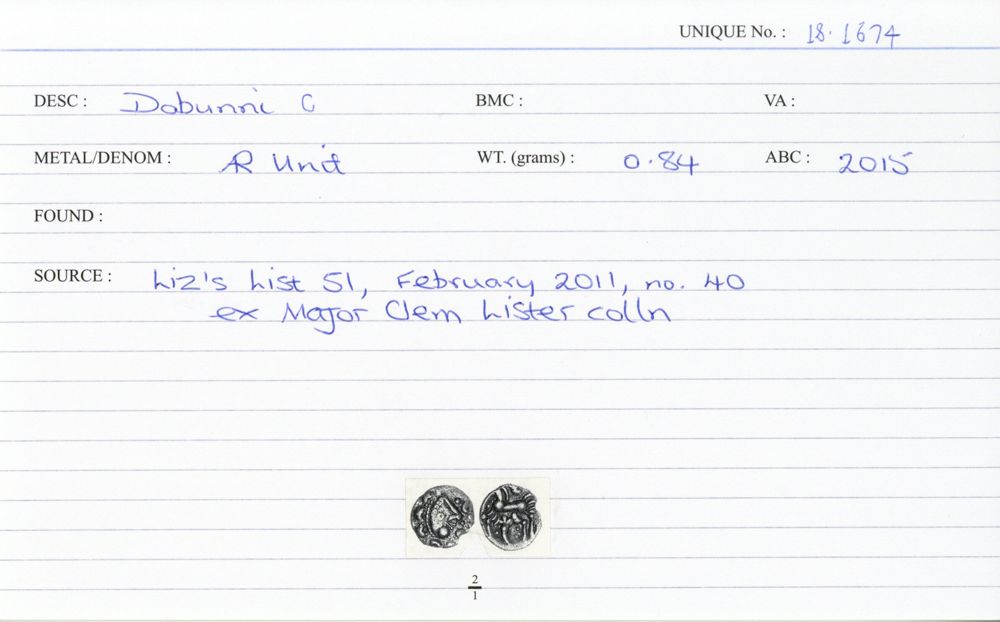 UNIQUE No. : 18.1674
DESC : Dobunni C BMC : VA :
METAL/DENOM : AR Unit WT. (grams) : 0.84 ABC : 2015
FOUND :
SOURCE : Liz's List 51, February 2011, no. 40
ex Major Clem Lister colln
2
1